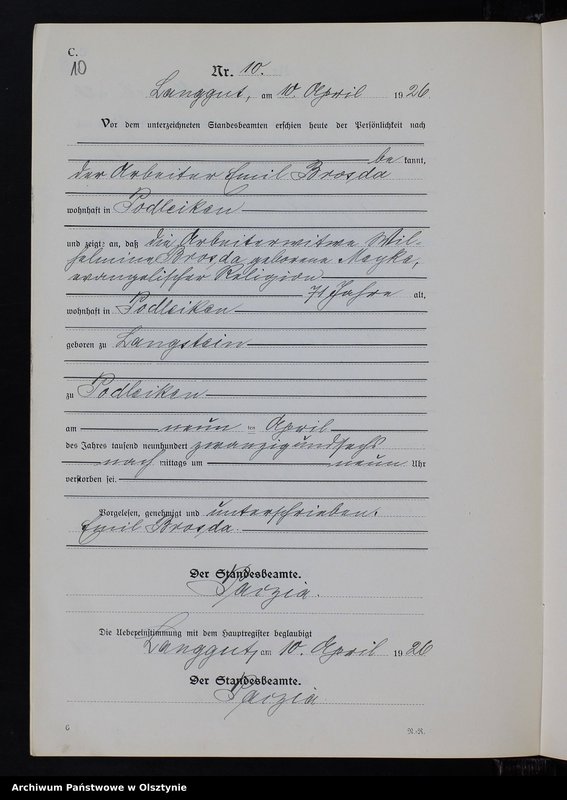 C.
10
Nr. 10.
Langgut, am 10. April 1926
Vor dem unterzeichneten Standesbeamten erschien heute der Persönlichkeit nach
be kannt,
der Arbeiter Emil Brosda
wohnhaft in Podleiken
und zeigte an, daß die Arbeiterwitwe Wil-
helmine Brosda, geborene Mayka,
evangelischer Religion
71 Jahre alt,
wohnhaft in Podleiken
geboren zu Langstein
zu Podleiken
am neun ten April
des Jahres tausend neunhundert zwanzigundsechs
nach mittags um neun Uhr
verstorben sei.
Vorgelesen, genehmigt und unterschrieben.
Emil Brosda.
Der Standesbeamte.
Die Uebereinstimmung mit dem Hauptregister beglaubigt
Langgut, am 10. April 1926
Der Standesbeamte.
G
N.-R.
Archiwum Państwowe w Olsztynie